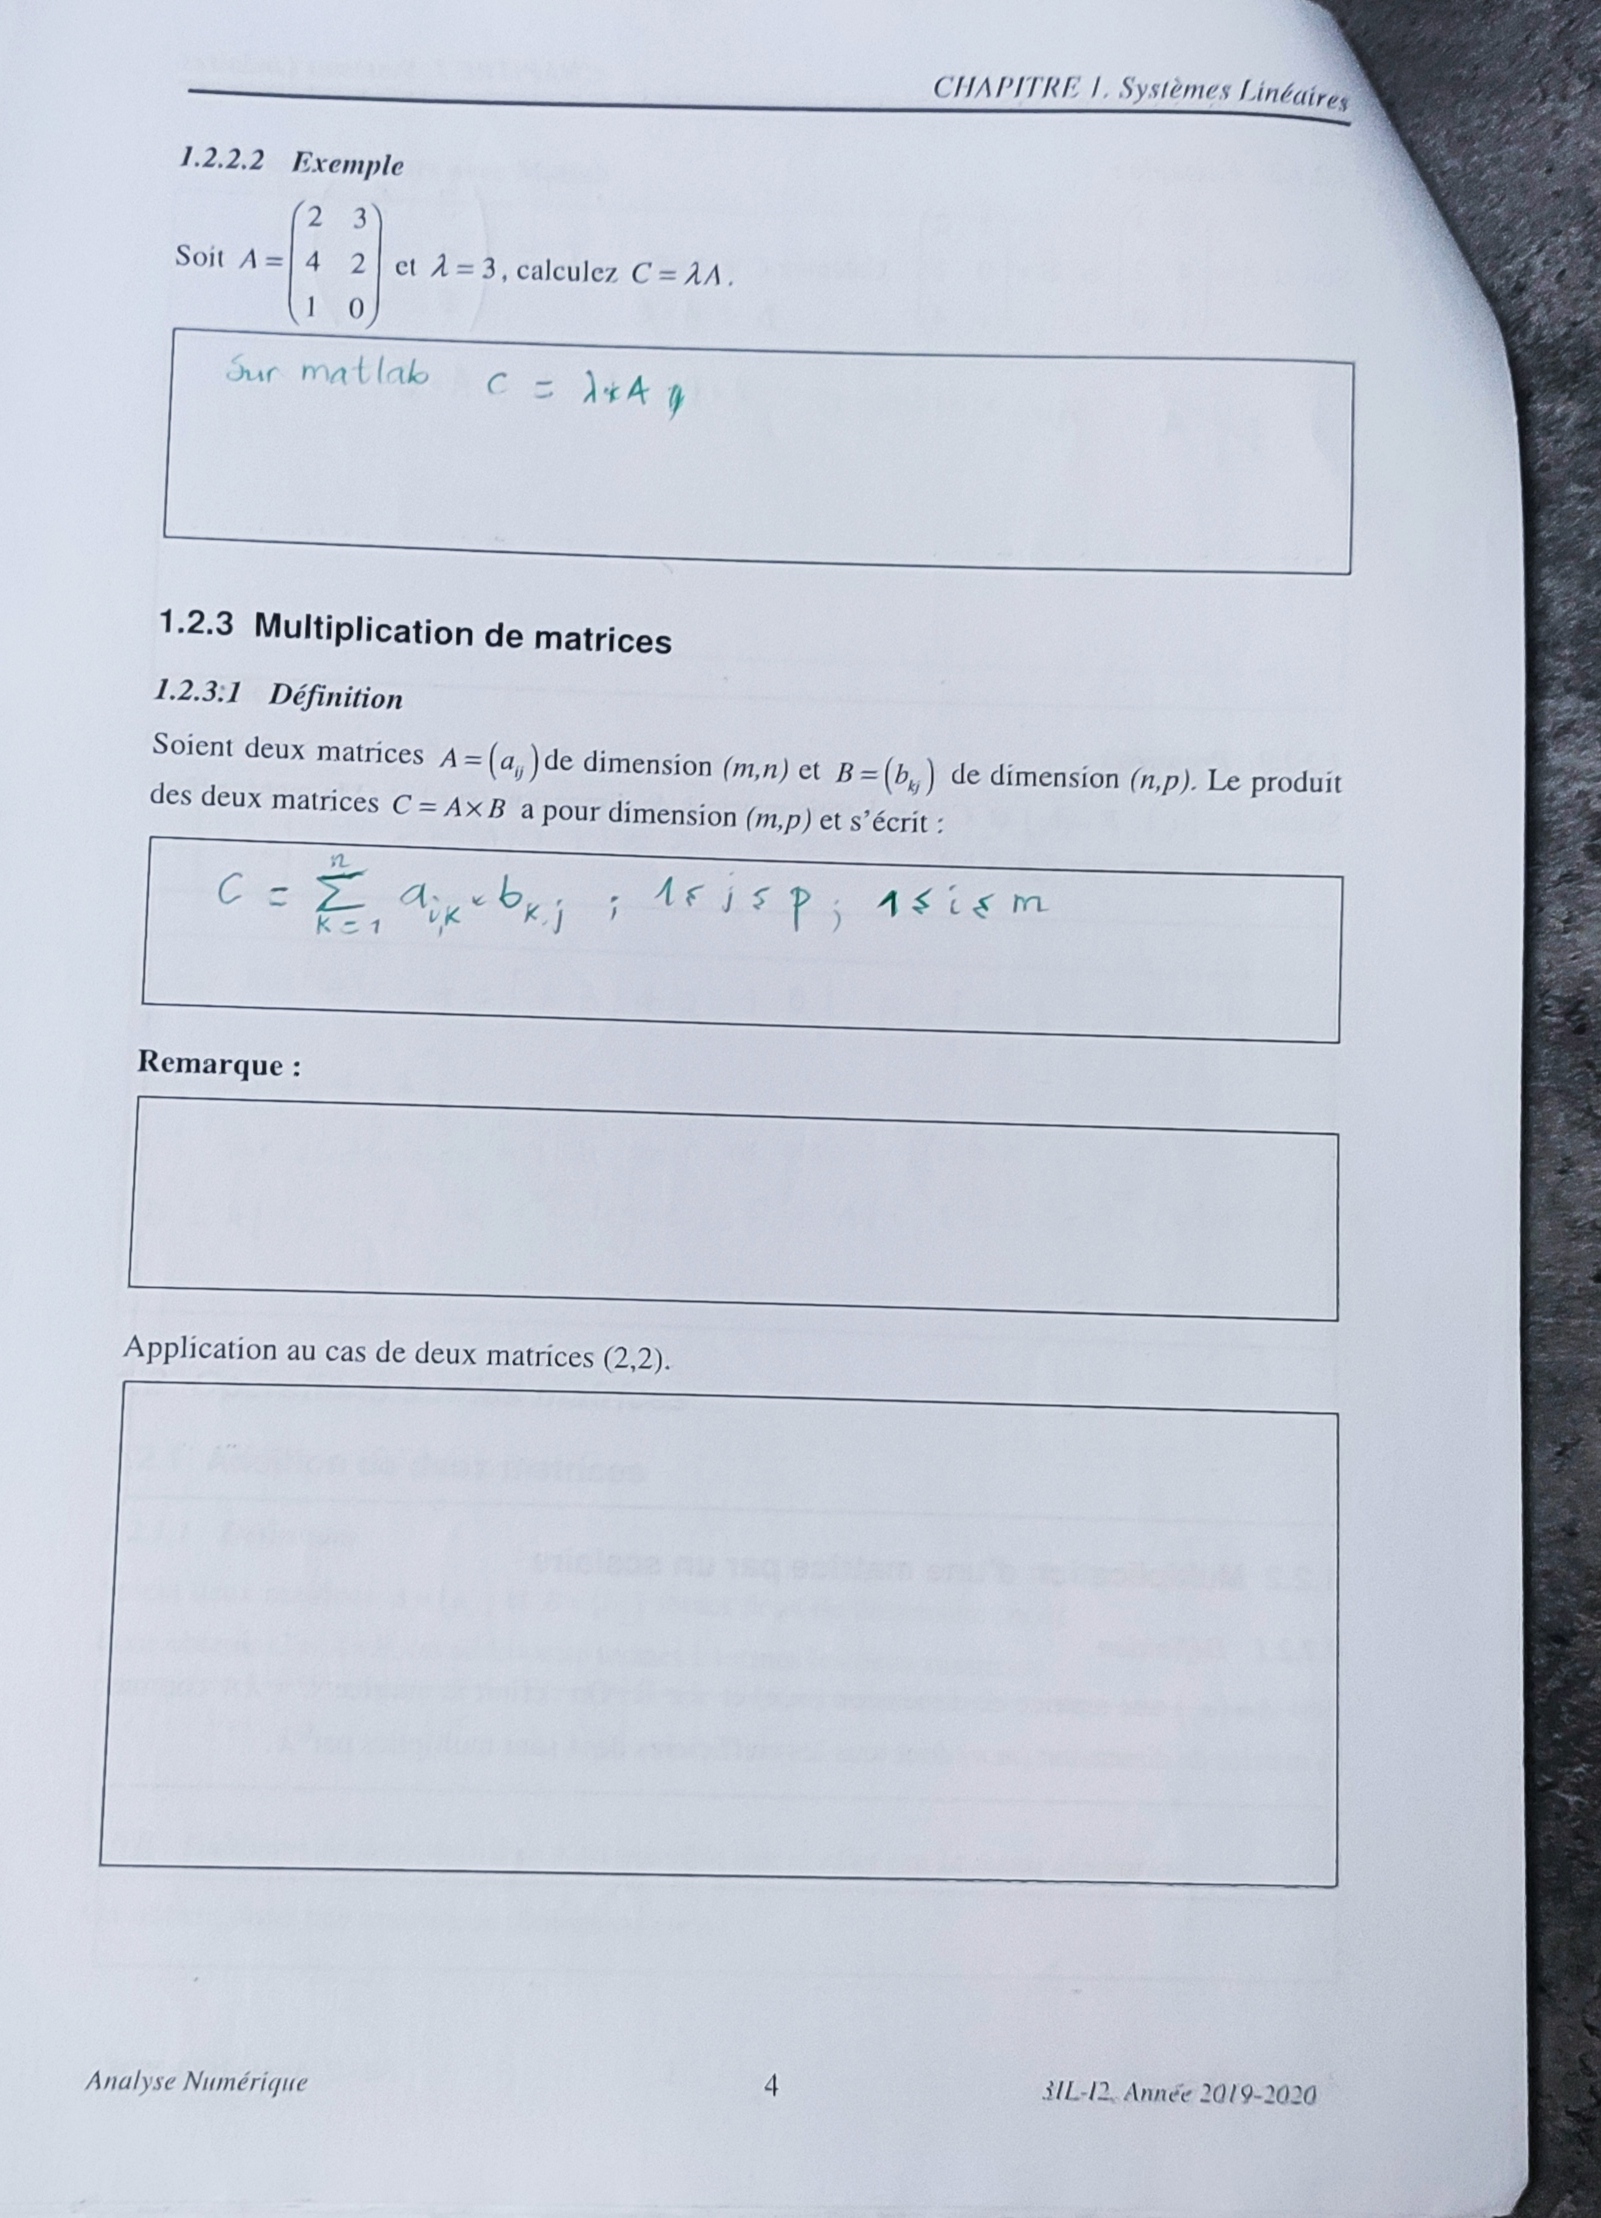 CHAPITRE 1. Systèmes Linéaires
1.2.2.2 Exemple
Soit A = (2 3
4 2
1 0) et λ = 3, calculez C = λA.
Sur matlab C = λ*A
1.2.3 Multiplication de matrices
1.2.3.1 Définition
Soient deux matrices A = (aij) de dimension (m,n) et B = (bkj) de dimension (n,p). Le produit
des deux matrices C = A×B a pour dimension (m,p) et s'écrit :
C = Σ(k=1 → n) ai,k × bk,j ; 1 ≤ j ≤ p ; 1 ≤ i ≤ m
Remarque :
Application au cas de deux matrices (2,2).
Analyse Numérique 4 3IL-I2, Année 2019-2020